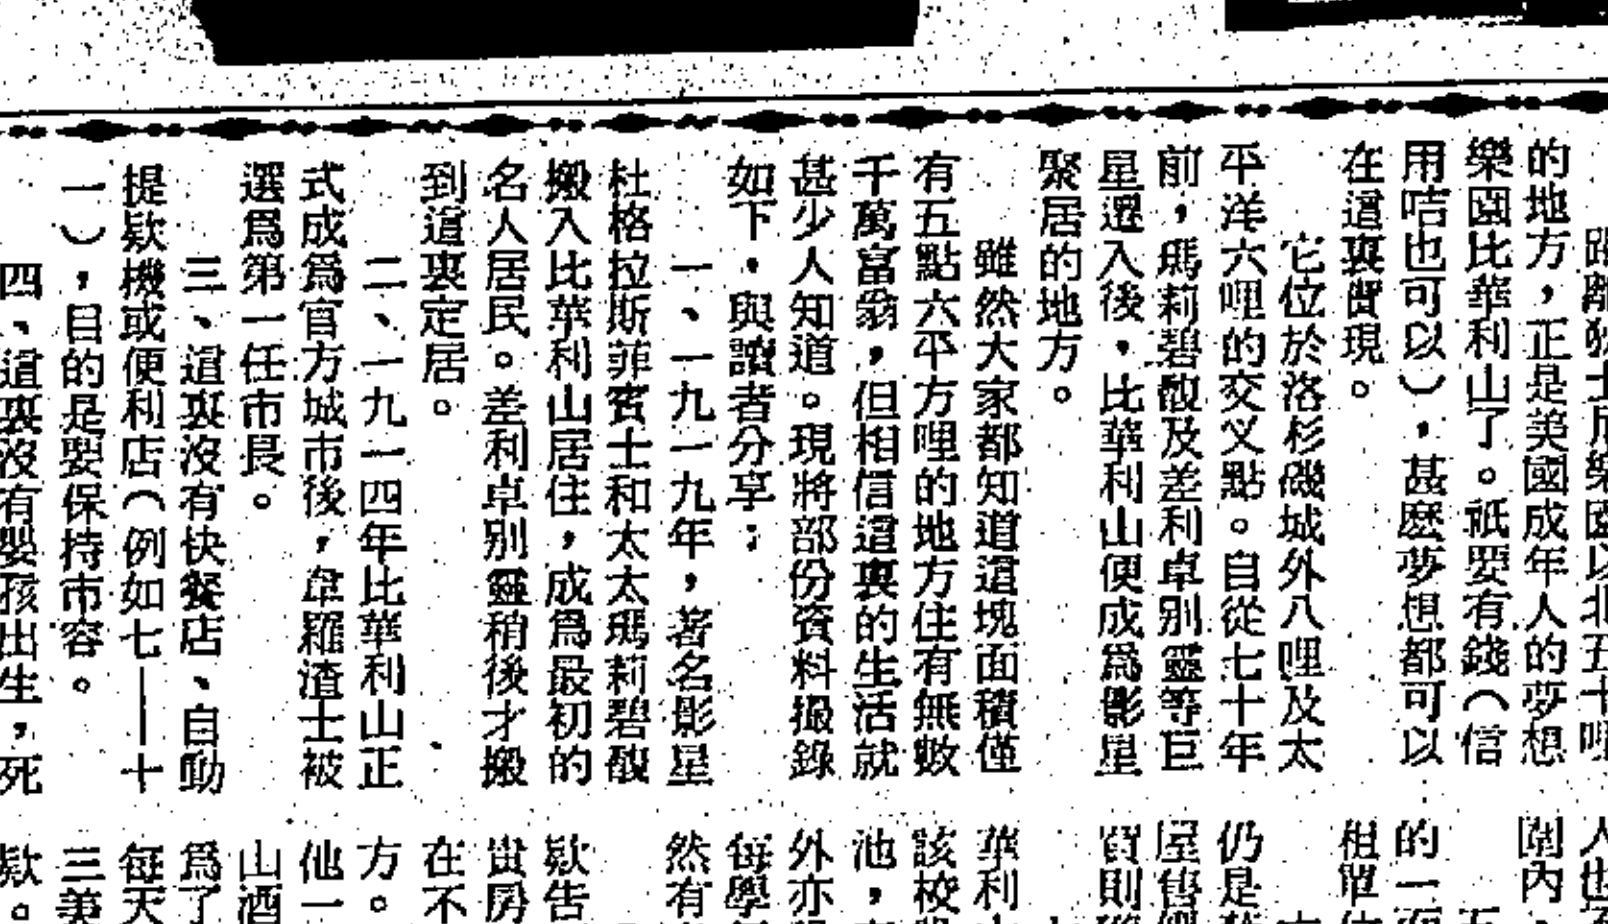 距離狄士尼樂園以北五十哩
的地方，正是美國成年人的夢想
樂園比華利山了。祇要有錢（信
用咭也可以），甚麽夢想都可以
在這裏實現。
它位於洛杉磯城外八哩及太
平洋六哩的交叉點。自從七十年
前，瑪莉碧馥及差利卓别靈等巨
星遷入後，比華利山便成爲影星
聚居的地方。
雖然大家都知道這塊面積僅
有五點六平方哩的地方住有無數
千萬富翁，但相信這裏的生活就
甚少人知道。現將部份資料撮錄
如下，與讀者分享：
一、一九一九年，著名影星
杜格拉斯菲賓士和太太瑪莉碧馥
搬入比華利山居住，成爲最初的
名人居民。差利卓别靈稍後才搬
到這裏定居。
二、一九一四年比華利山正
式成爲官方城市後，韋羅渣士被
選爲第一任市長。
三、這裏沒有快餐店、自動
提欵機或便利店（例如七——十
一），目的是要保持市容。
四、這裏沒有嬰孩出生，死
人也
圍內
的一
租單
仍是
屋售
買則
華利
該校
池，
外亦
每學
然有
欵告
貴房
在不
方。
他一
山酒
爲了
每天
三美
欵。